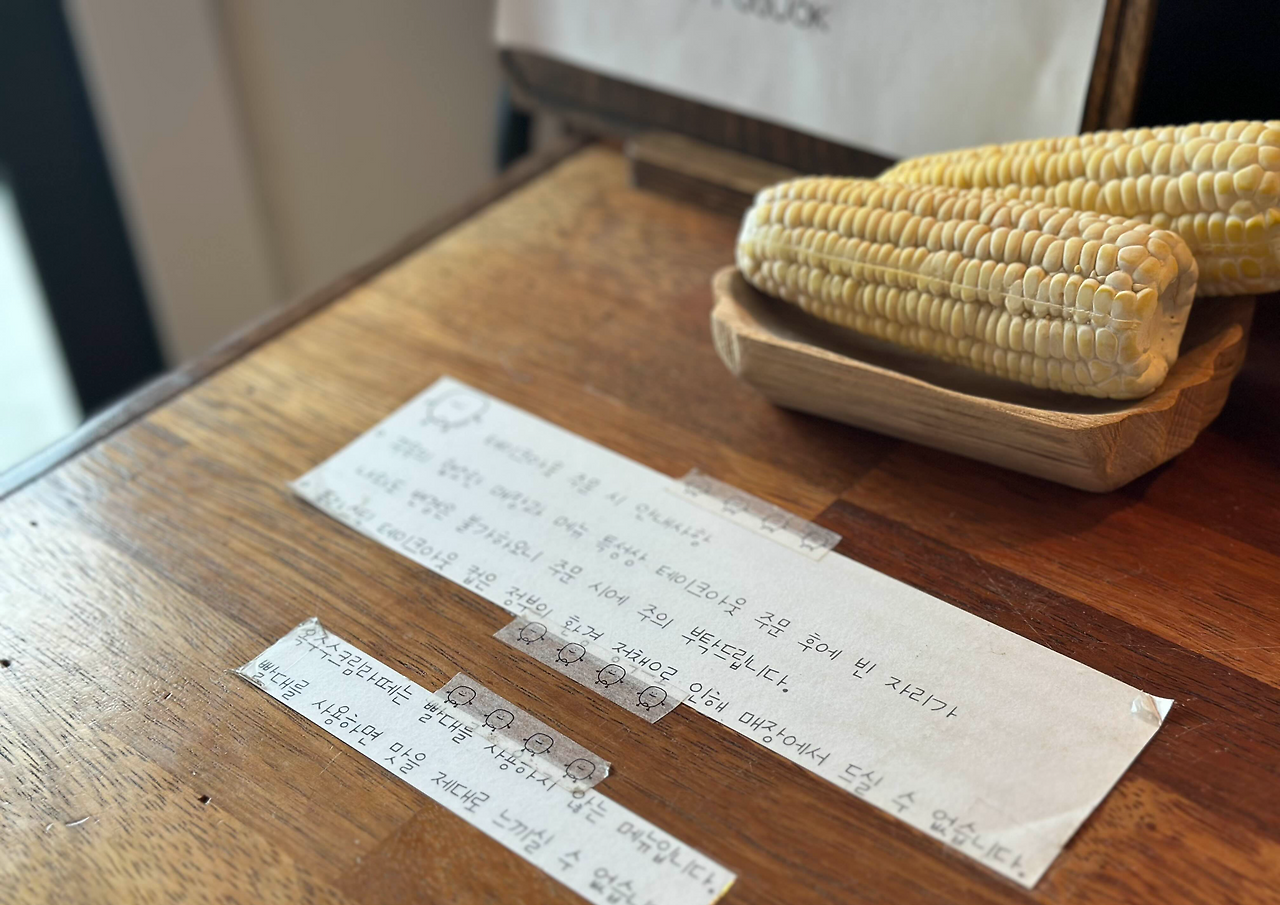 테이크아웃 주문 시 안내사항
매장과 메뉴 특성상 테이크아웃 주문 후에 빈 자리가
나와도 변경은 불가하오니 주문 시에 주의 부탁드립니다.
테이크아웃 컵은 정부의 환경 정책으로 인해 매장에서 드실 수 없습니다.
옥수수크림라떼는 빨대를 사용하지 않는 메뉴입니다.
빨대를 사용하면 맛을 제대로 느끼실 수 없습니